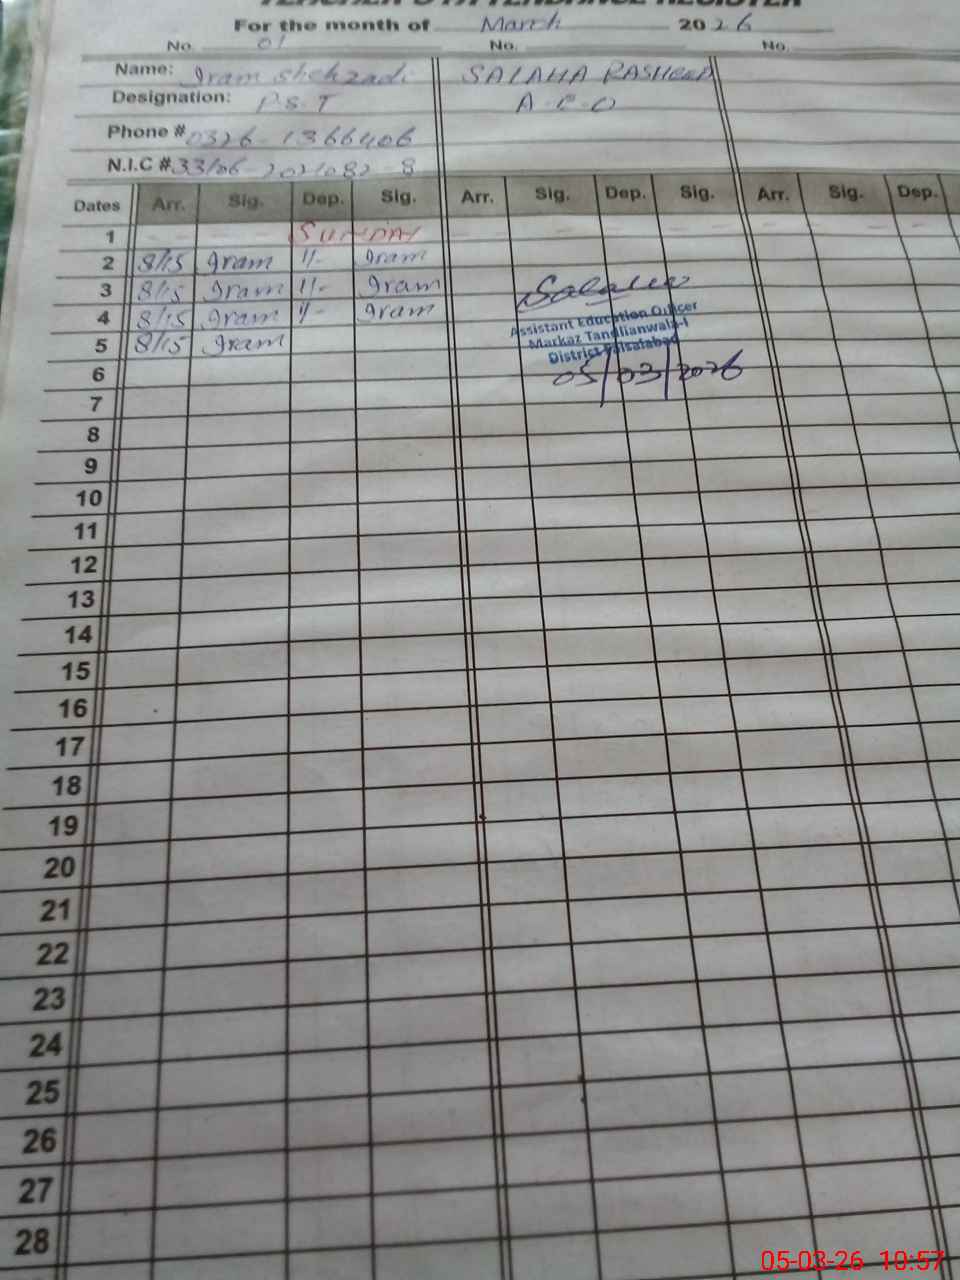 TEACHER'S ATTENDANCE REGISTER
For the month of March 2026
No. 01 No. No.
Name: Iram Shehzadi SALAHA RASHEED
Designation: P.S.T A.E.O
Phone # 0326-1366406
N.I.C #
Dates Arr. Sig. Dep. Sig. Arr. Sig. Dep. Sig. Arr. Sig. Dep.
1 SUNDAY
2 8/15 Iram 1/- Iram
3 8/15 Iram 1/- Iram
4 8/15 Iram 1/- Iram
5 8/15 Iram
Salaha
Assistant Education Officer
Markaz Tandlianwala-I
District Faisalabad
05/03/2026
6
7
8
9
10
11
12
13
14
15
16
17
18
19
20
21
22
23
24
25
26
27
28
05-03-26 10:57